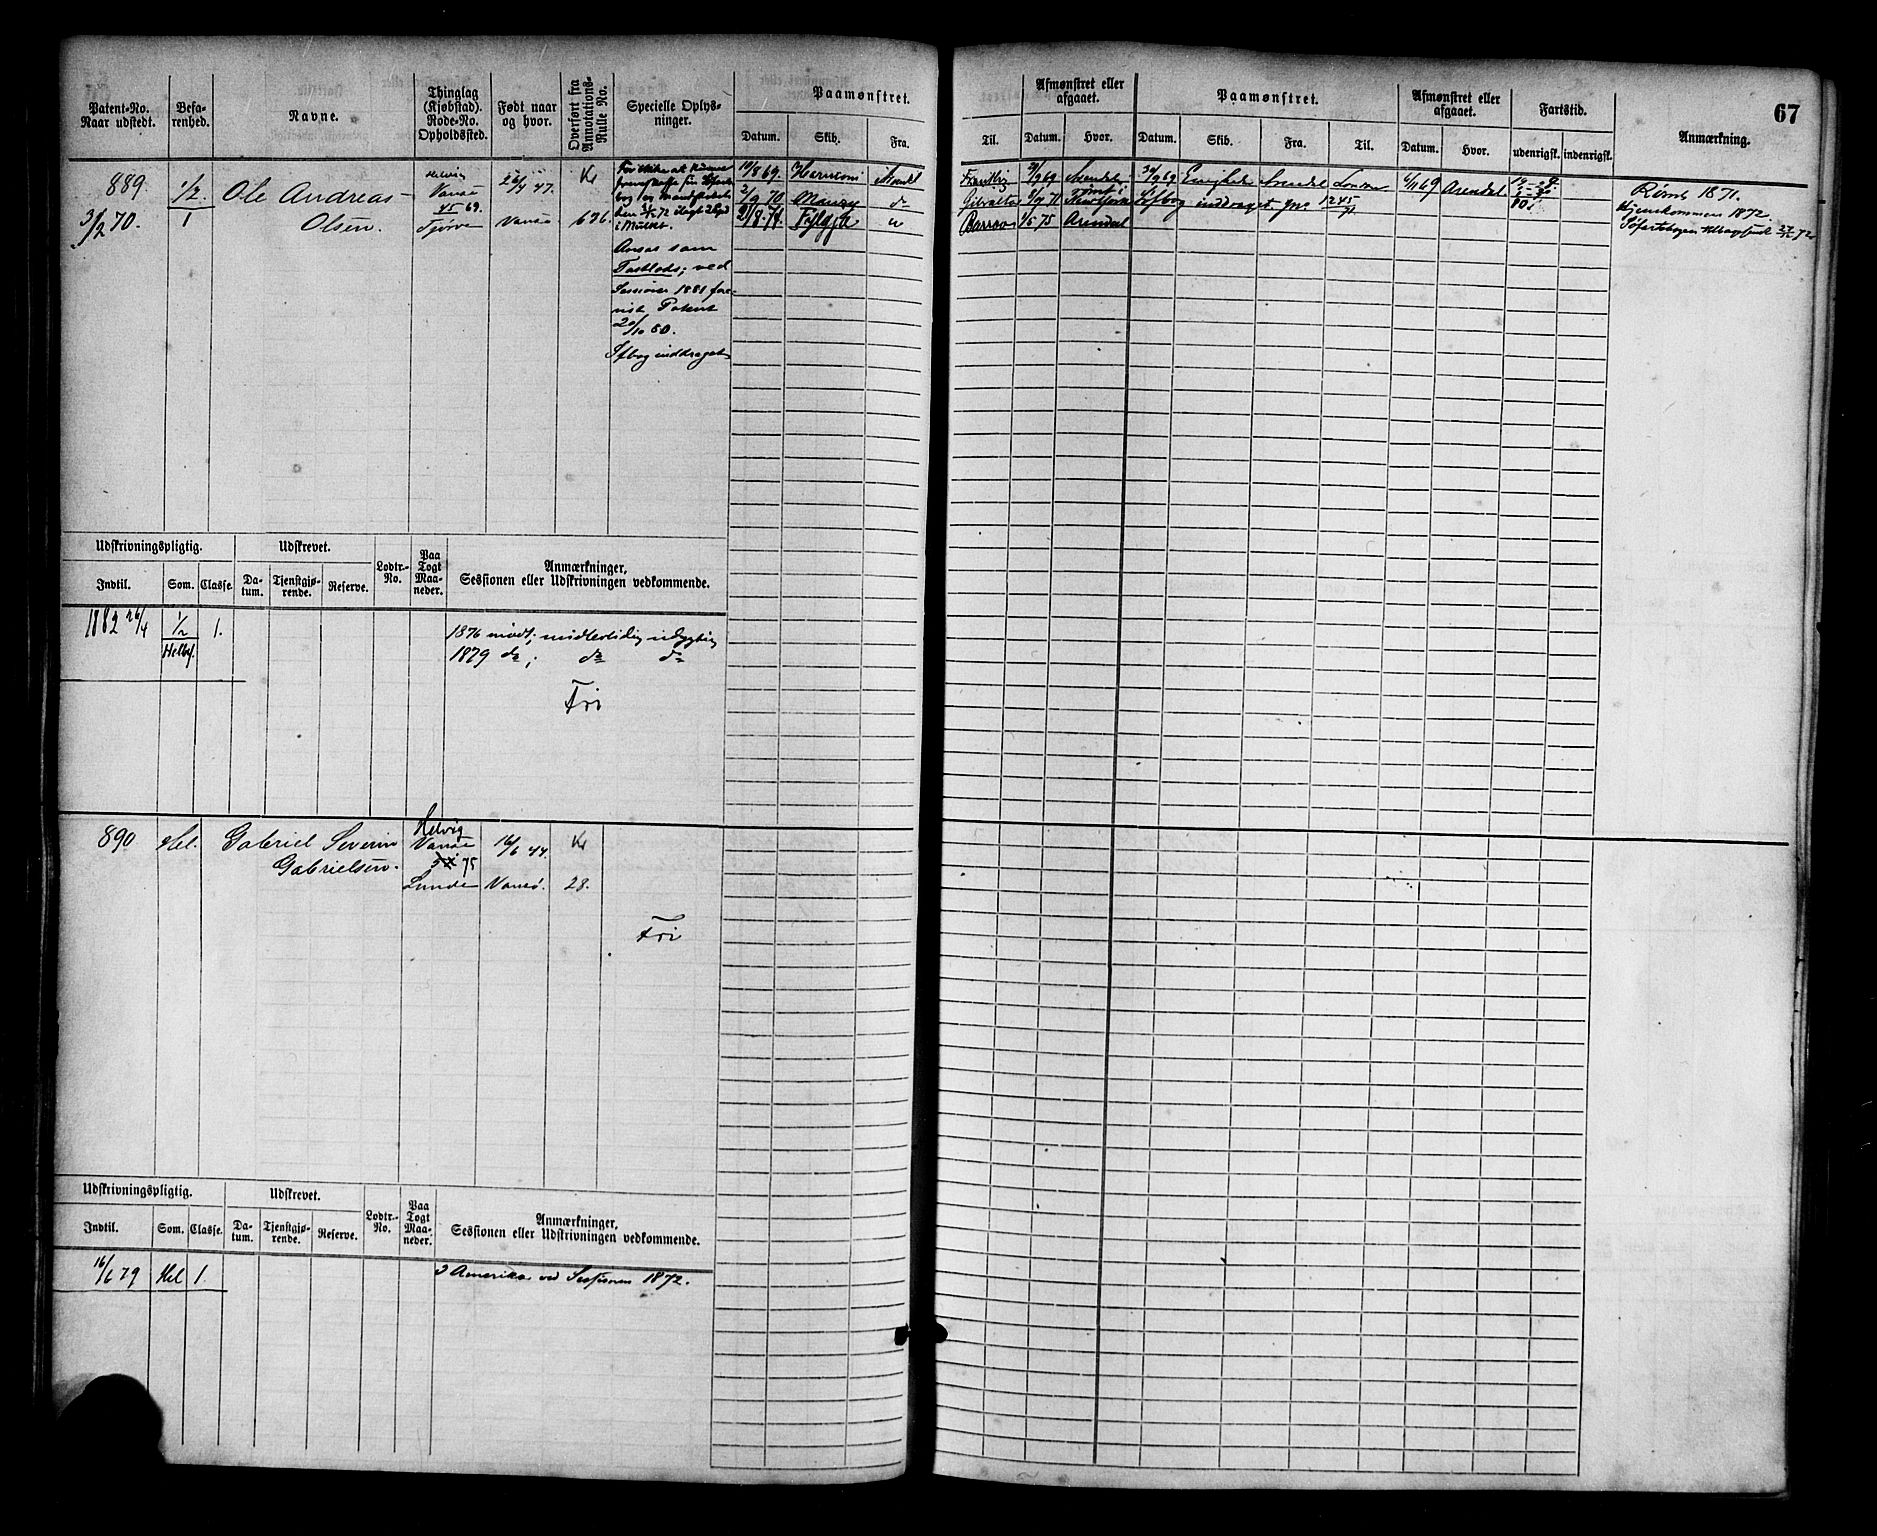 67
Patent-No. Naar udstedt.
Befarenhed.
Navne.
Thinglag (Kjøbstad). Rode-No. Opholdssted.
Født naar og hvor.
Overført fra Annotations-Rulle No.
Specielle Oplysninger.
Paamønstret.
Datum. Skib. Fra. Til.
Afmønstret eller afgaaet.
Datum. Hvor.
Paamønstret.
Datum. Skib. Fra. Til.
Afmønstret eller afgaaet.
Datum. Hvor.
Fartstid.
udenrigsk. indenrigsk.
Anmærkning.
889.
3/2 70.
1/2
1
Ole Andreas
Olsen.
Helvig
Vansø
45 69.
Tjørve
26/4 47.
Vansø
Kr
696.
Ansøs som
Fastlods; ved
Sessionen 1881 fore-
vist Patent
20/10 80.
Sfbog inddraget
10/8 69. Arendal
2/9 70 do
Arendal
30/9 69 Enigheden Arendal London 6/11 69 Arendal
Gibraltar
Sfbog inddraget
Barrow 1/5 75 Arendal
Rømt 1871.
Hjemkommen 1872.
Udskrivningspligtig.
Indtil. Som. Classe.
Udskrevet.
Datum. Tjenstgjørende. Reserve.
Lodtr.-No.
Paa Togt Maaneder.
Anmærkninger, Sessionen eller Udskrivningen vedkommende.
1882 26/4 1/2 1.
Helbf.
1876 mødt; midlertidig udygtig
1879 do; do do
Fri
890
Hel.
Gabriel Severin
Gabrielsen.
Helvig
Vansø
75
Lunde
16/6 44.
Vansø.
Kr
28.
Fri
Udskrivningspligtig.
Indtil. Som. Classe.
Udskrevet.
Datum. Tjenstgjørende. Reserve.
Lodtr.-No.
Paa Togt Maaneder.
Anmærkninger, Sessionen eller Udskrivningen vedkommende.
16/6 79 Hel 1.
I Amerika ved Sessionen 1872.